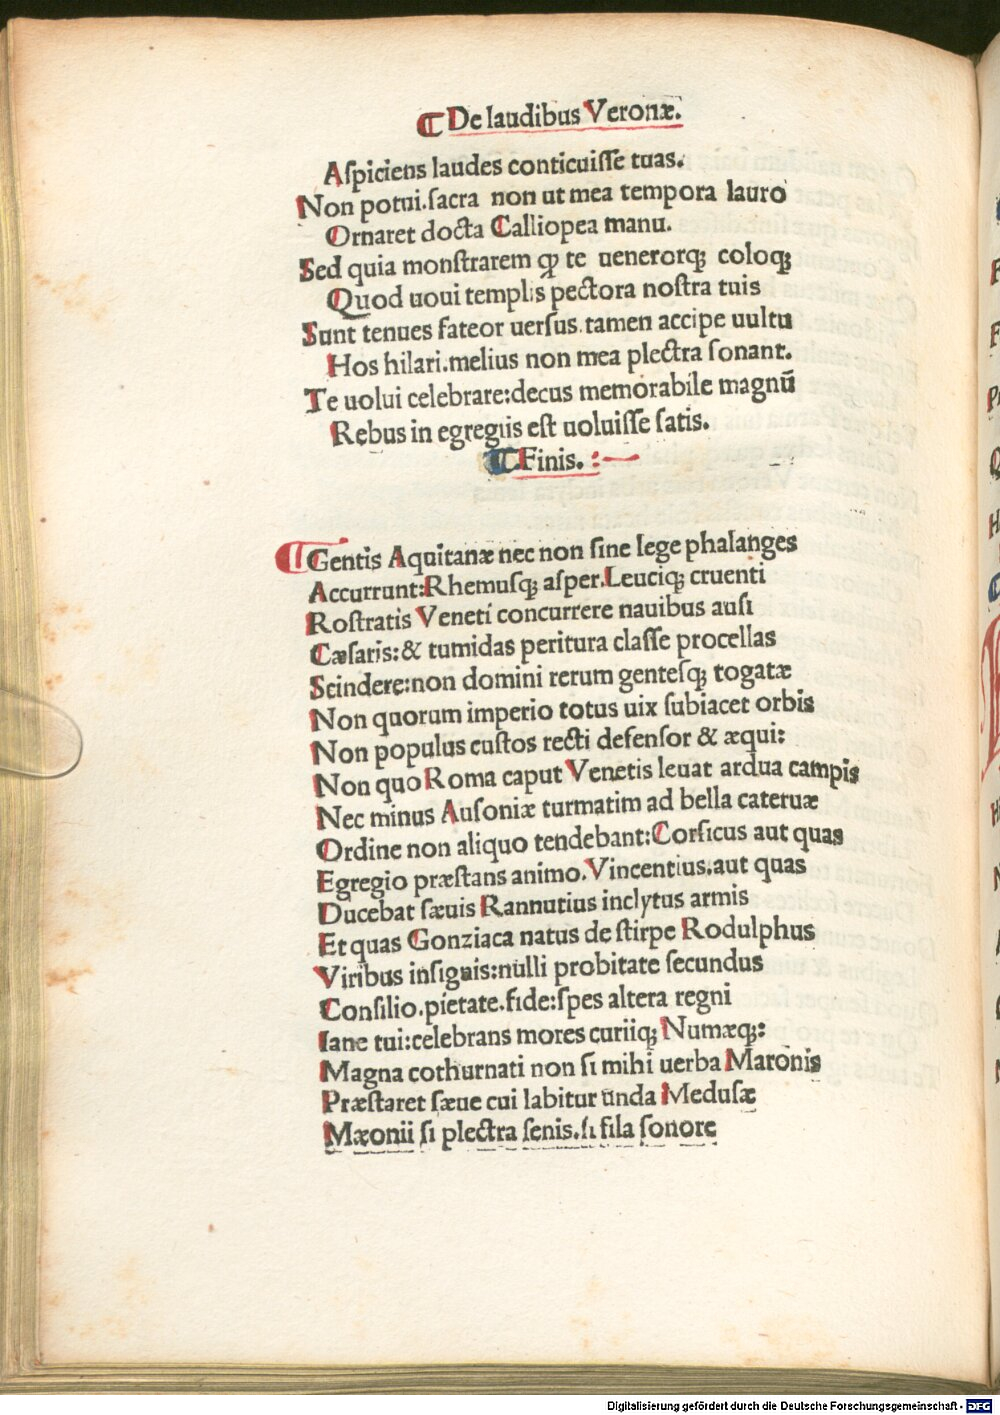 ¶ De laudibus Veronæ.
Aſpiciens laudes conticuiſſe tuas.
Non potui.ſacra non ut mea tempora lauro
Ornaret docta Calliopea manu.
Sed quia monſtrarem ꝙ te uenerorqꝫ coloqꝫ
Quod uoui templis pectora noſtra tuis
Sunt tenues fateor uerſus.tamen accipe uultu
Hos hilari.melius non mea plectra ſonant.
Te uolui celebrare:decus memorabile magnū
Rebus in egregiis eſt uoluiſſe ſatis.
¶ Finis. :—
¶ Gentis Aquitanæ nec non ſine lege phalanges
Accurrunt:Rhemusqꝫ aſper.Leuciqꝫ cruenti
Roſtratis Veneti concurrere nauibus auſi
Cæſaris:& tumidas peritura claſſe procellas
Scindere:non domini rerum genteſqꝫ togatæ
Non quorum imperio totus uix ſubiacet orbis
Non populus cuſtos recti defenſor & æqui:
Non quo Roma caput Venetis leuat ardua campis
Nec minus Auſoniæ turmatim ad bella cateruæ
Ordine non aliquo tendebant:Corſicus aut quas
Egregio præſtans animo.Vincentius.aut quas
Ducebat ſæuis Rannutius inclytus armis
Et quas Gonziaca natus de ſtirpe Rodulphus
Viribus inſignis:nulli probitate ſecundus
Conſilio.pietate.fide:ſpes altera regni
Iane tui:celebrans mores curiiqꝫ Numæqꝫ:
Magna cothurnati non ſi mihi uerba Maronis
Præſtaret ſæue cui labitur unda Meduſæ
Mæonii ſi plectra ſenis.ſi fila ſonore
Digitalisierung gefördert durch die Deutsche Forschungsgemeinschaft - DFG